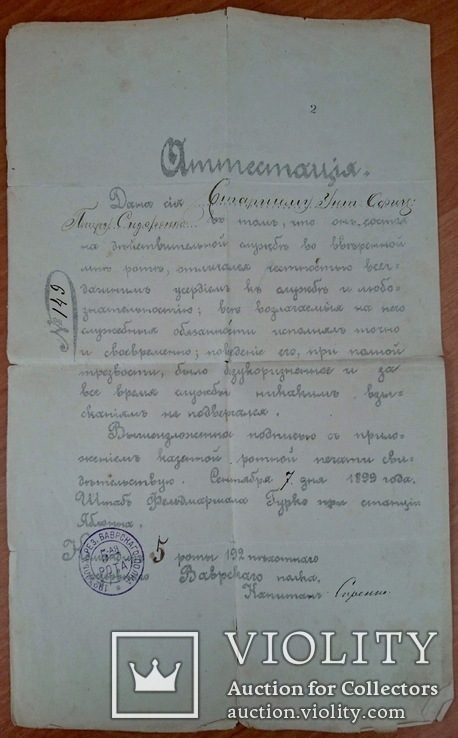 2
Аттестація.
Дана сія Старшему Унт. Офиц.
Петру Сидоренко въ томъ, что онъ состоя
на дѣйствительной службѣ во ввѣренной
мнѣ ротѣ, отличался честностью всег-
дашнимъ усердіемъ къ службѣ и любо-
знательностію; всѣ возлагаемыя на него
служебныя обязанности исполнялъ точно
и своевременно; поведеніе его, при полной
трезвости, было безукоризненное и за
все время службы никакимъ взы-
сканіямъ не подвергался.
Вышеизложенное подписью съ прило-
женіемъ казенной ротной печати сви-
дѣтельствую. Сентября 7 дня 1899 года.
Штабъ Фельдмаршала Гурко при станціи
Яблонна.
5 роты 192 пѣхотнаго
Ваврскаго полка,
Капитанъ
№ 149
РЕЗ. ВАВРСКАГО ПОЛКА
5-АЯ
РОТА
VIOLITY
Auction for Collectors
auction.violity.com